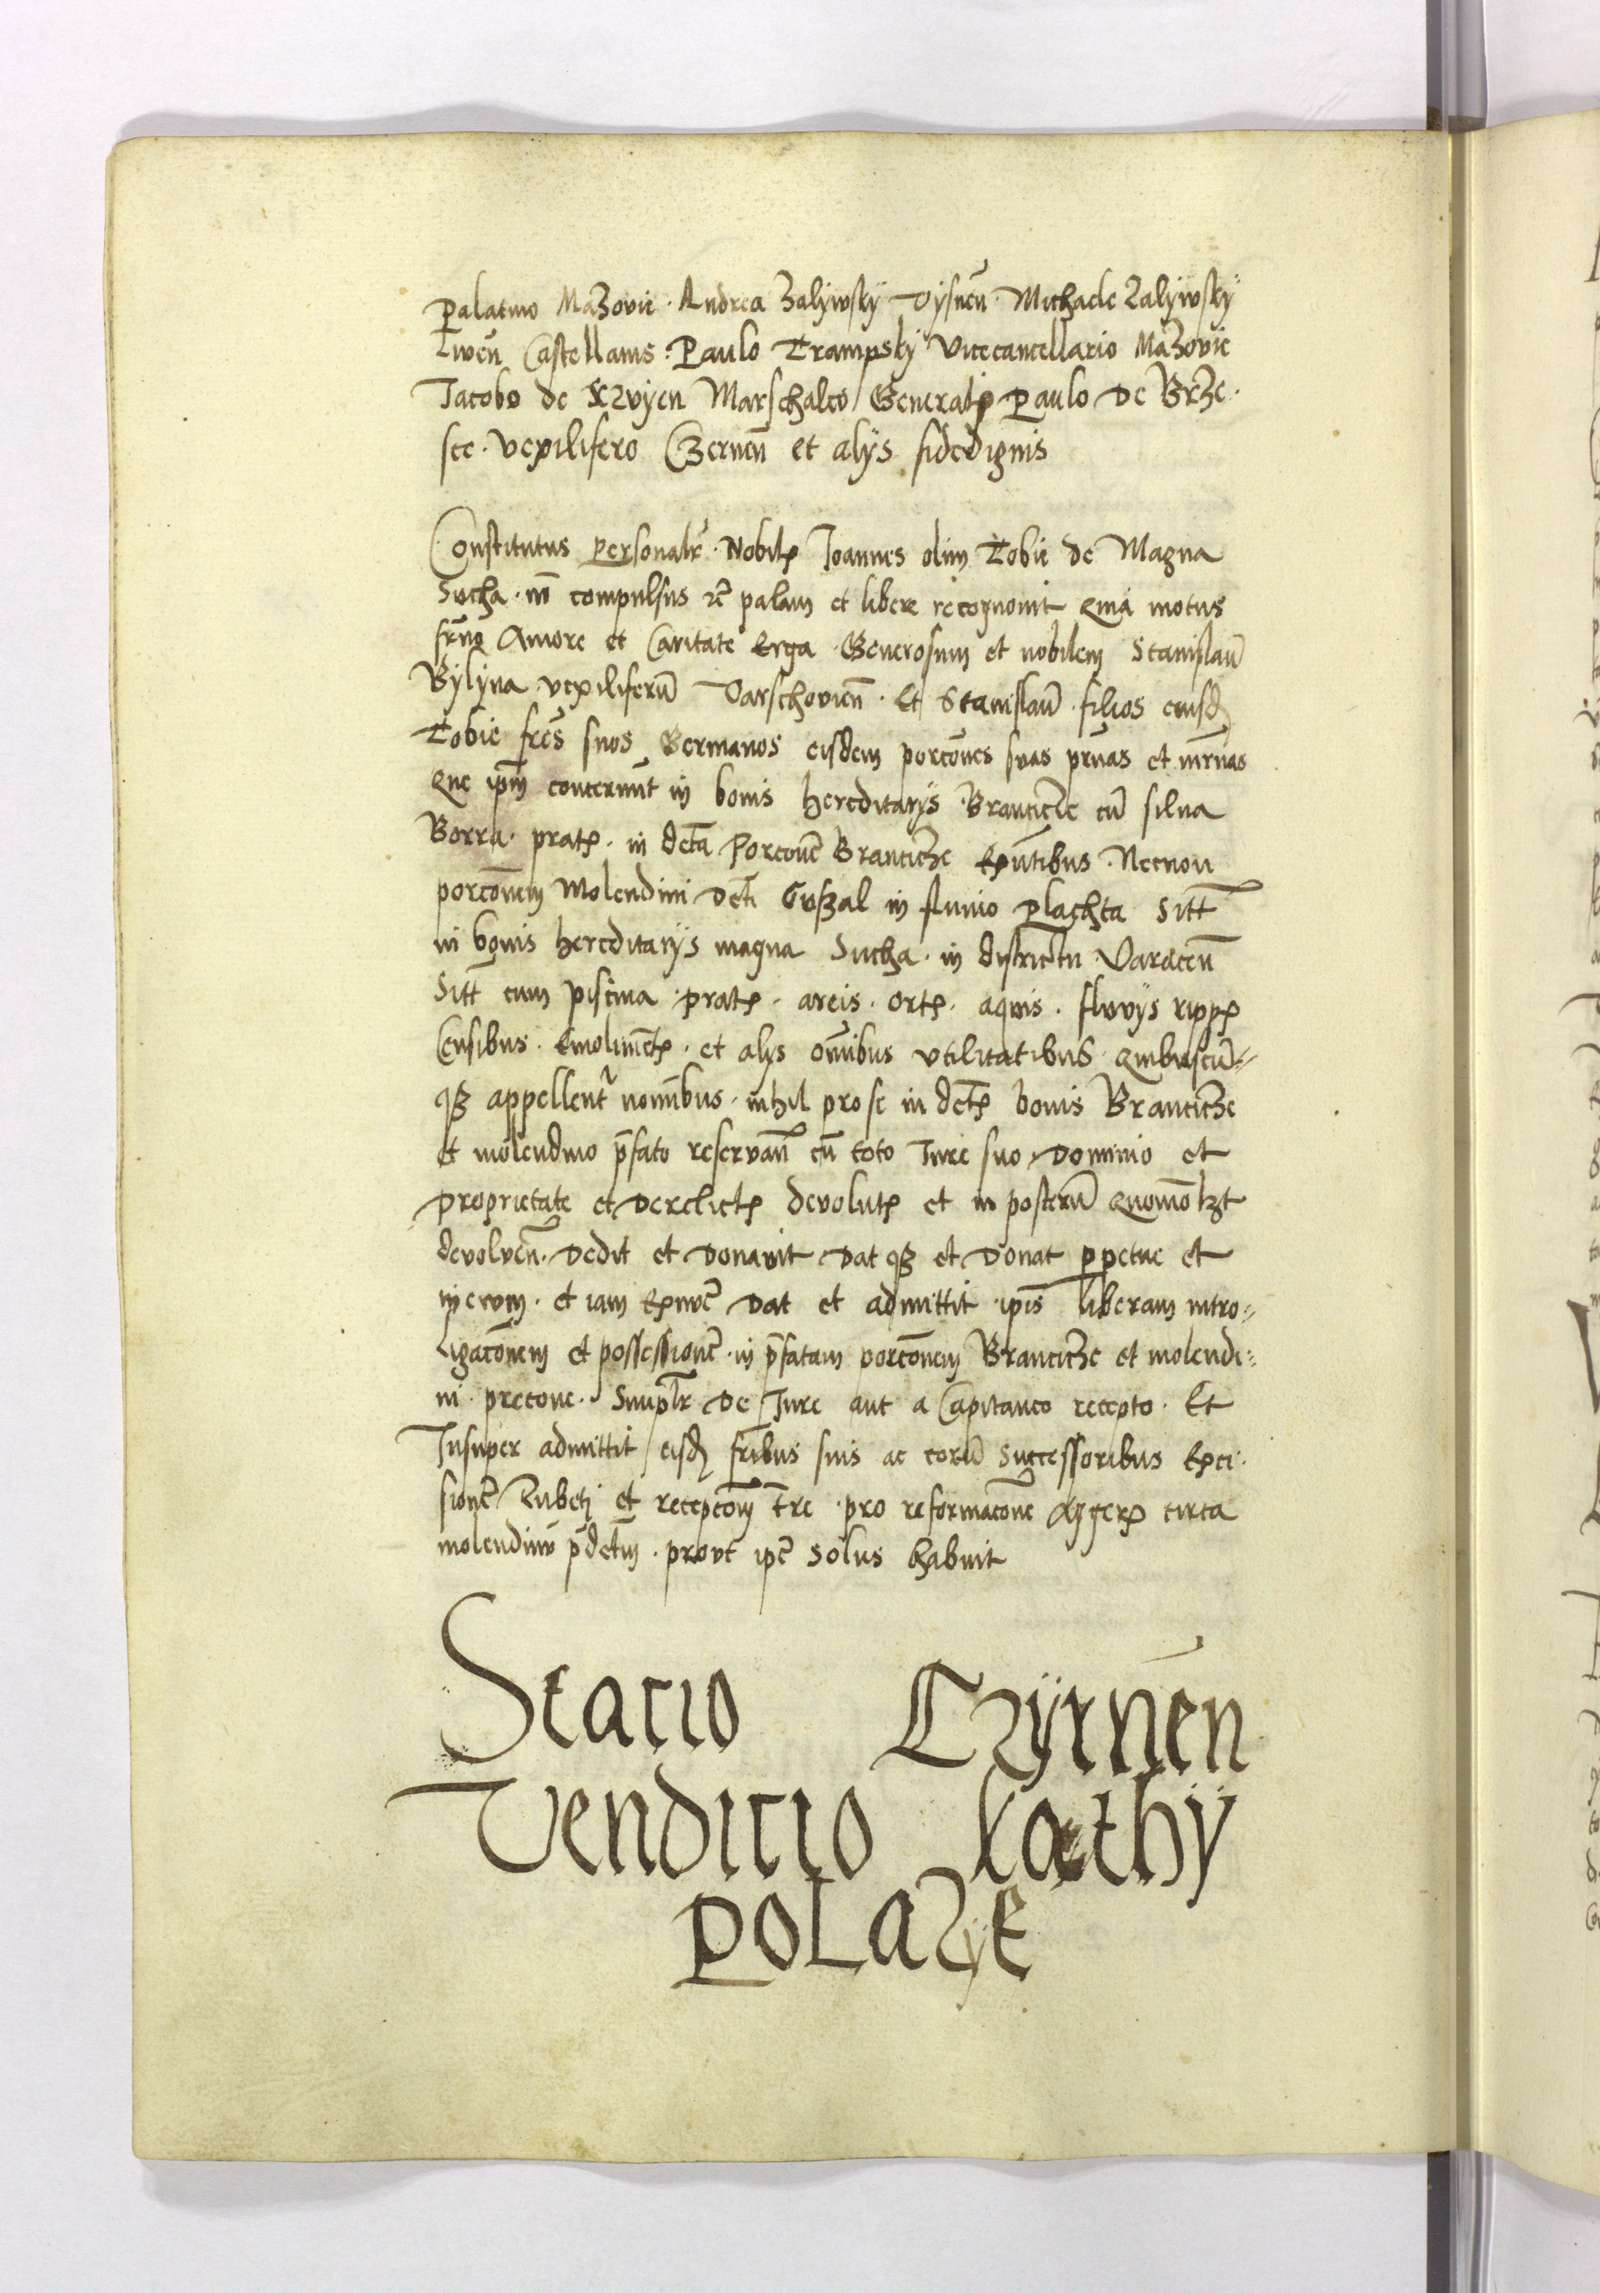 Palatino Mazovie · Andrea Zalijwskij Vysnen̄ · Michaele Zalijwskij
Liwen̄ Castellanis · Paulo Trampskij Vicecancellario Mazovie
Jacobo de Xzvijen Marschalco Generalꝭ Paulo De Brze·
see · vexilifero Czernen̄ et alijs fidedignis
Constitutus personalr̄ · Nobilꝭ Joannes olim Tobie de Magna
Sucha · nō compulsus &c̄ palam et libere recognovit Quia motus
frn̄o Amore et Caritate Erga · Generosum et nobilem Stanislaū
Bylyna vexiliferū Varschovien̄ · Et Stanislaū · filios eiusdꝫ
Tobie frēs suos Germanos eisdem porcōnes suas prn̄as et mrn̄as
Que ipm̄ concernūt in bonis hereditarijs · Brancicze cū silva
Borra · pratꝭ · in dcta Porcōne Brancicze Exn̄tibus · Necnon
porcōnem Molendini Dcti Guszal in fluvio Plachta Sitt̄
in bonis hereditarijs magna Sucha · in districtu Varccen̄
Sitt̄ cum piscina · pratꝭ · areis · ortꝭ · aquis · fluvijs rippꝭ
Censibus · Emolimētꝭ · et alijs om̄ibus vtilitatibus quibuscū⸗
qꝫ appellent᷑ nomībus · nihil pro se in dctꝭ bonis Brancicze
et molendino p̄fato reservan̄ cū toto Jure suo Dominio et
proprietate et Derelictꝭ devolutꝭ et in posterū Quomōlꝫt
devolven̄ · Dedit et Donavit Datqꝫ et Donat ꝑpetue et
in evum · et iam Exnūc Dat et admittit · ipīs liberam intro⸗
ligacōnem et possessionē · in p̄fatam porcōnem Brancicze et molendi⸗
ni precone · Simplr̄ De Jure aut a Capitaneo recepto · Et
Insuper admittit eisdꝫ frībus suis ac eorū successoribus Exci·
sionē Rubetj et recepcōm̄ tr̄re · pro reformacōne Aggerꝭ circa
molendinū p̄dctm̄ · provt ipē solus habuit
Stacio Czijrnen̄
Vendicio Kathij
Polazije